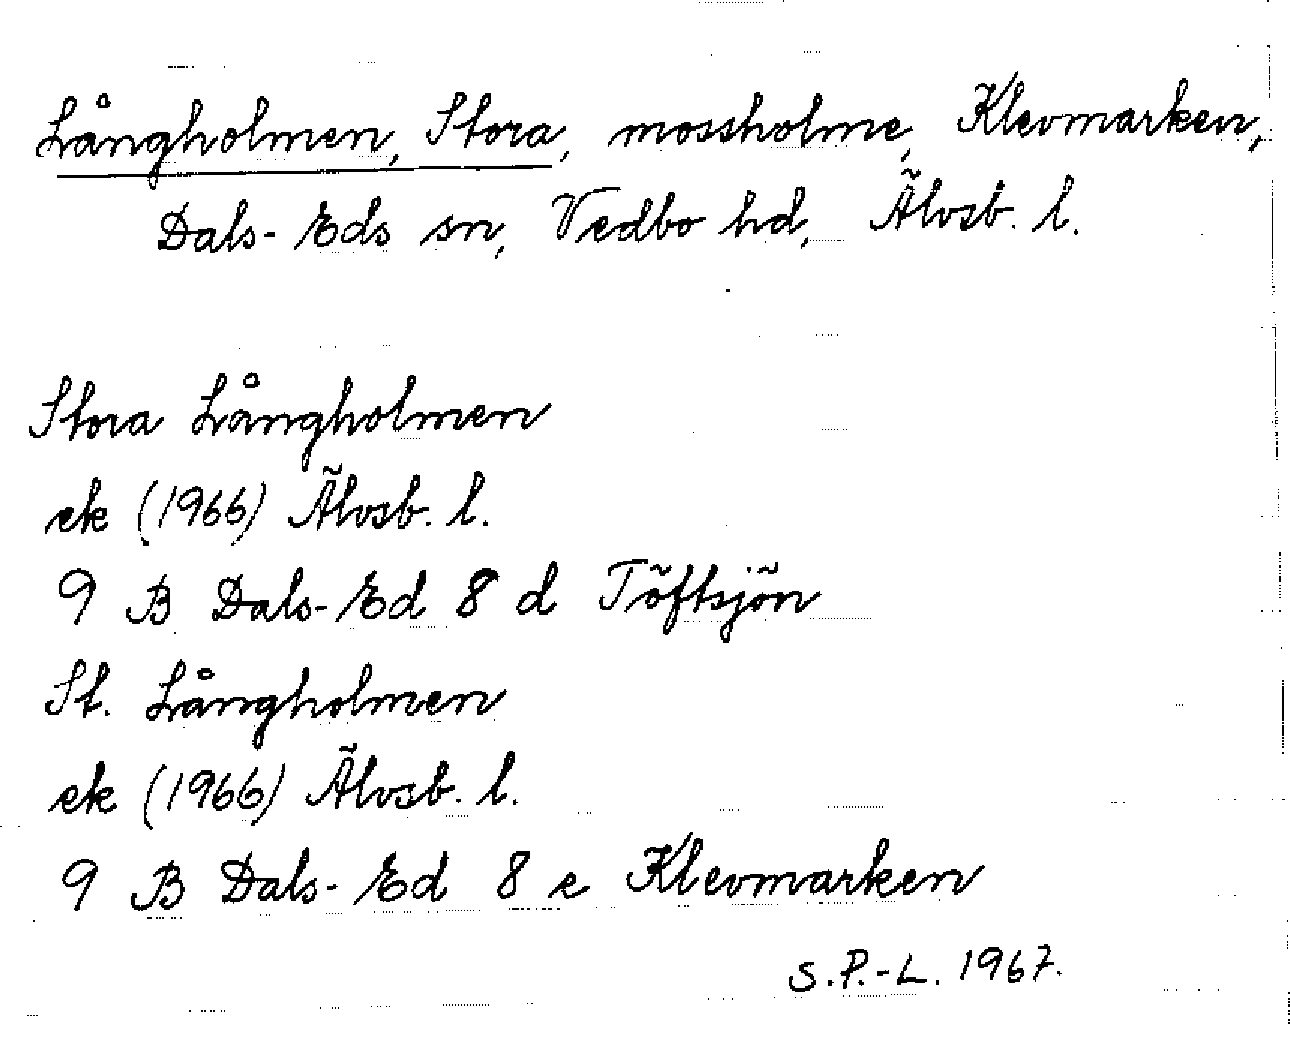 Långholmen, Stora, mossholme, Klevmarken,
Dals-Eds sn, Vedbo hd, Älvsb. l.
Stora Långholmen
ek (1966) Älvsb. l.
9 B Dals-Ed 8 d Töftsjön
St. Långholmen
ek (1966) Älvsb. l.
9 B Dals-Ed 8 e Klevmarken
S.P.-L. 1967.